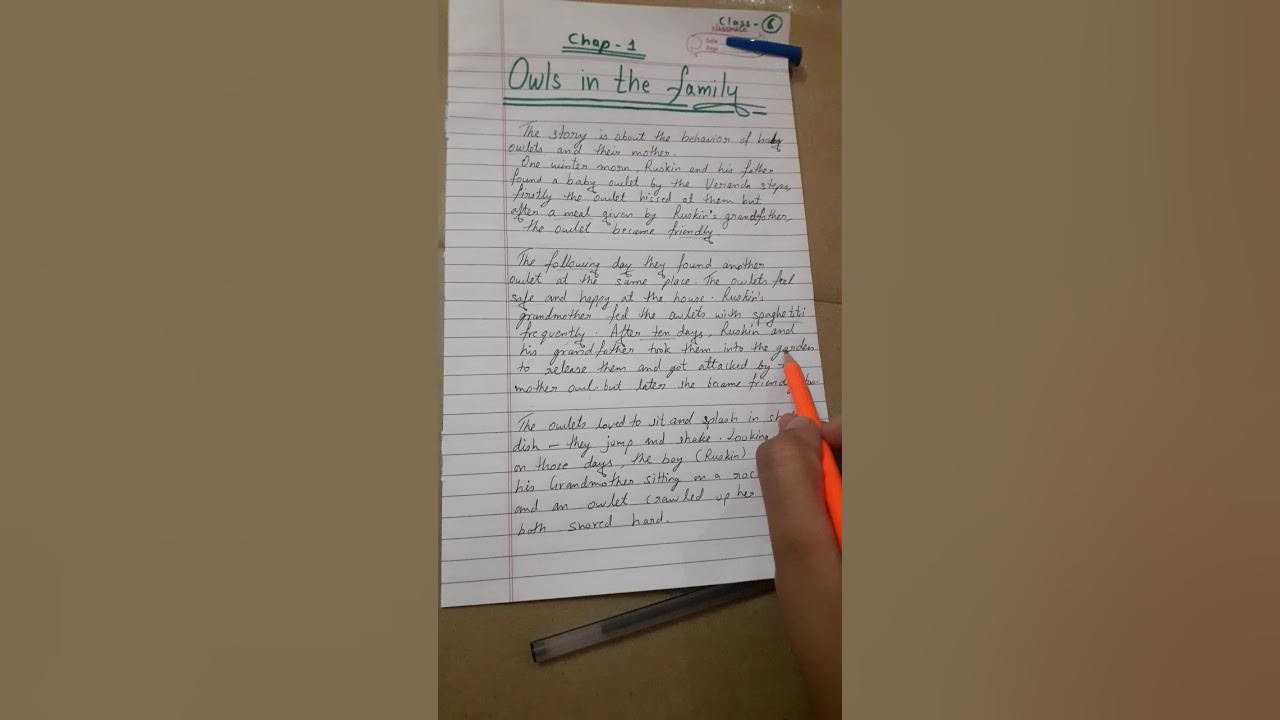 Class - 6
classmate
Date
Page
Chap - 1
Owls in the family
The story is about the behavior of baby
owlets and their mother.
One winter morn, Ruskin and his father
found a baby owlet by the Verenda steps,
firstly the owlet hissed at them but
after a meal given by Ruskin's grandfather,
the owlet became friendly.
The following day they found another
owlet at the same place. The owlets feel
safe and happy at the house. Ruskin's
grandmother fed the owlets with spaghetti
frequently. After ten days, Ruskin and
his grandfather took them into the garden
to release them and got attacked by
mother owl. but later she became friendly
The owlets loved to sit and splash in
dish - they jump and shake. Looking
on those days, the boy (Ruskin)
his Grandmother sitting on a
and an owlet crawled up her
both snored hard.